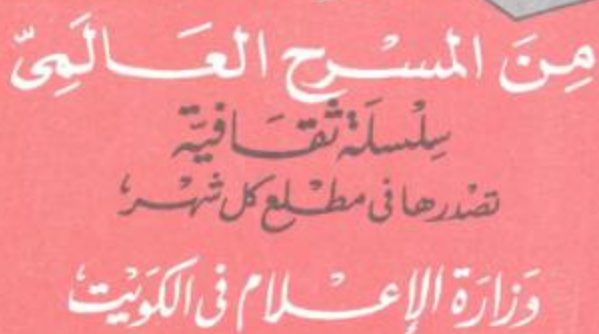 مِنَ المسْرح العَالَميّ
سِلْسلَة ثقَافيّة
تصْدرها في مطْلع كل شهْر
وَزارَة الإعْلام في الكوَيْت